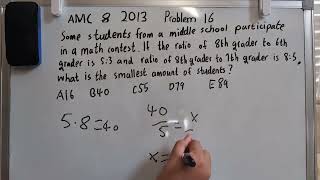 AMC 8 2013 Problem 16
Some students from a middle school participate
in a math contest. If the ratio of 8th grader to 6th
grader is 5:3 and ratio of 8th grader to 7th grader is 8:5,
what is the smallest amount of students?
A16 B40 C55 D79 E89
5.8=40
40/5=x
x=